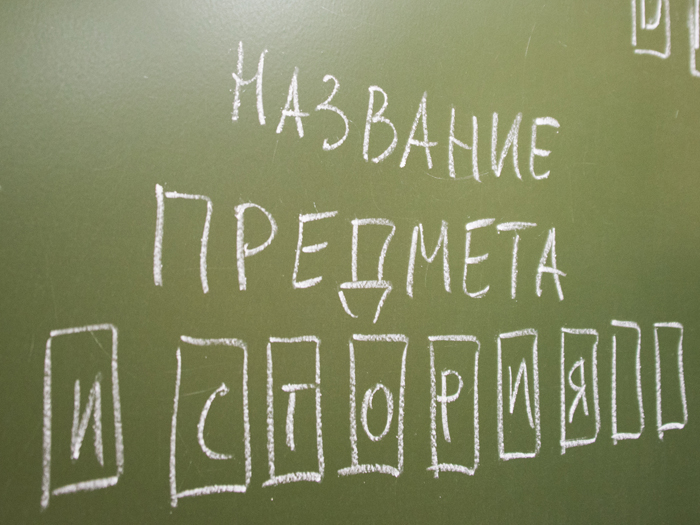 НАЗВАНИЕ
ПРЕДМЕТА
ИСТОРИЯ